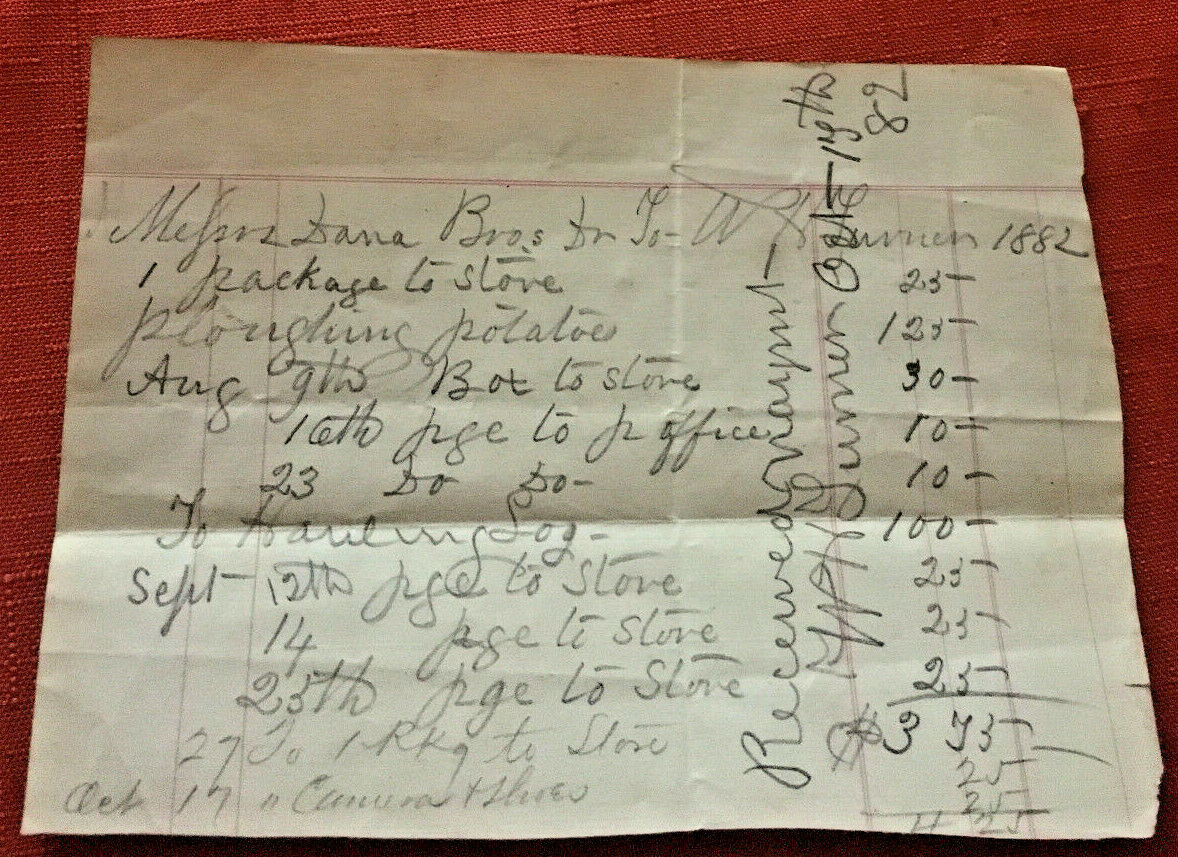 Messrs Dana Bros Dr To W H Turner 1882
1 package to store 25
ploughing potatoes 125
Aug 9th Box to store 30
16th pge to p office 10
23 Do Do 10
To Hauling Log 100
Sept 12th pge to Store 25
14 pge to Store 25
25th pge to Store 25
$3 75
27 To 1 Pkg to Store 25
Oct 17 " Camera + 25
4 25
Received Payment
W H Turner Oct 17th
82